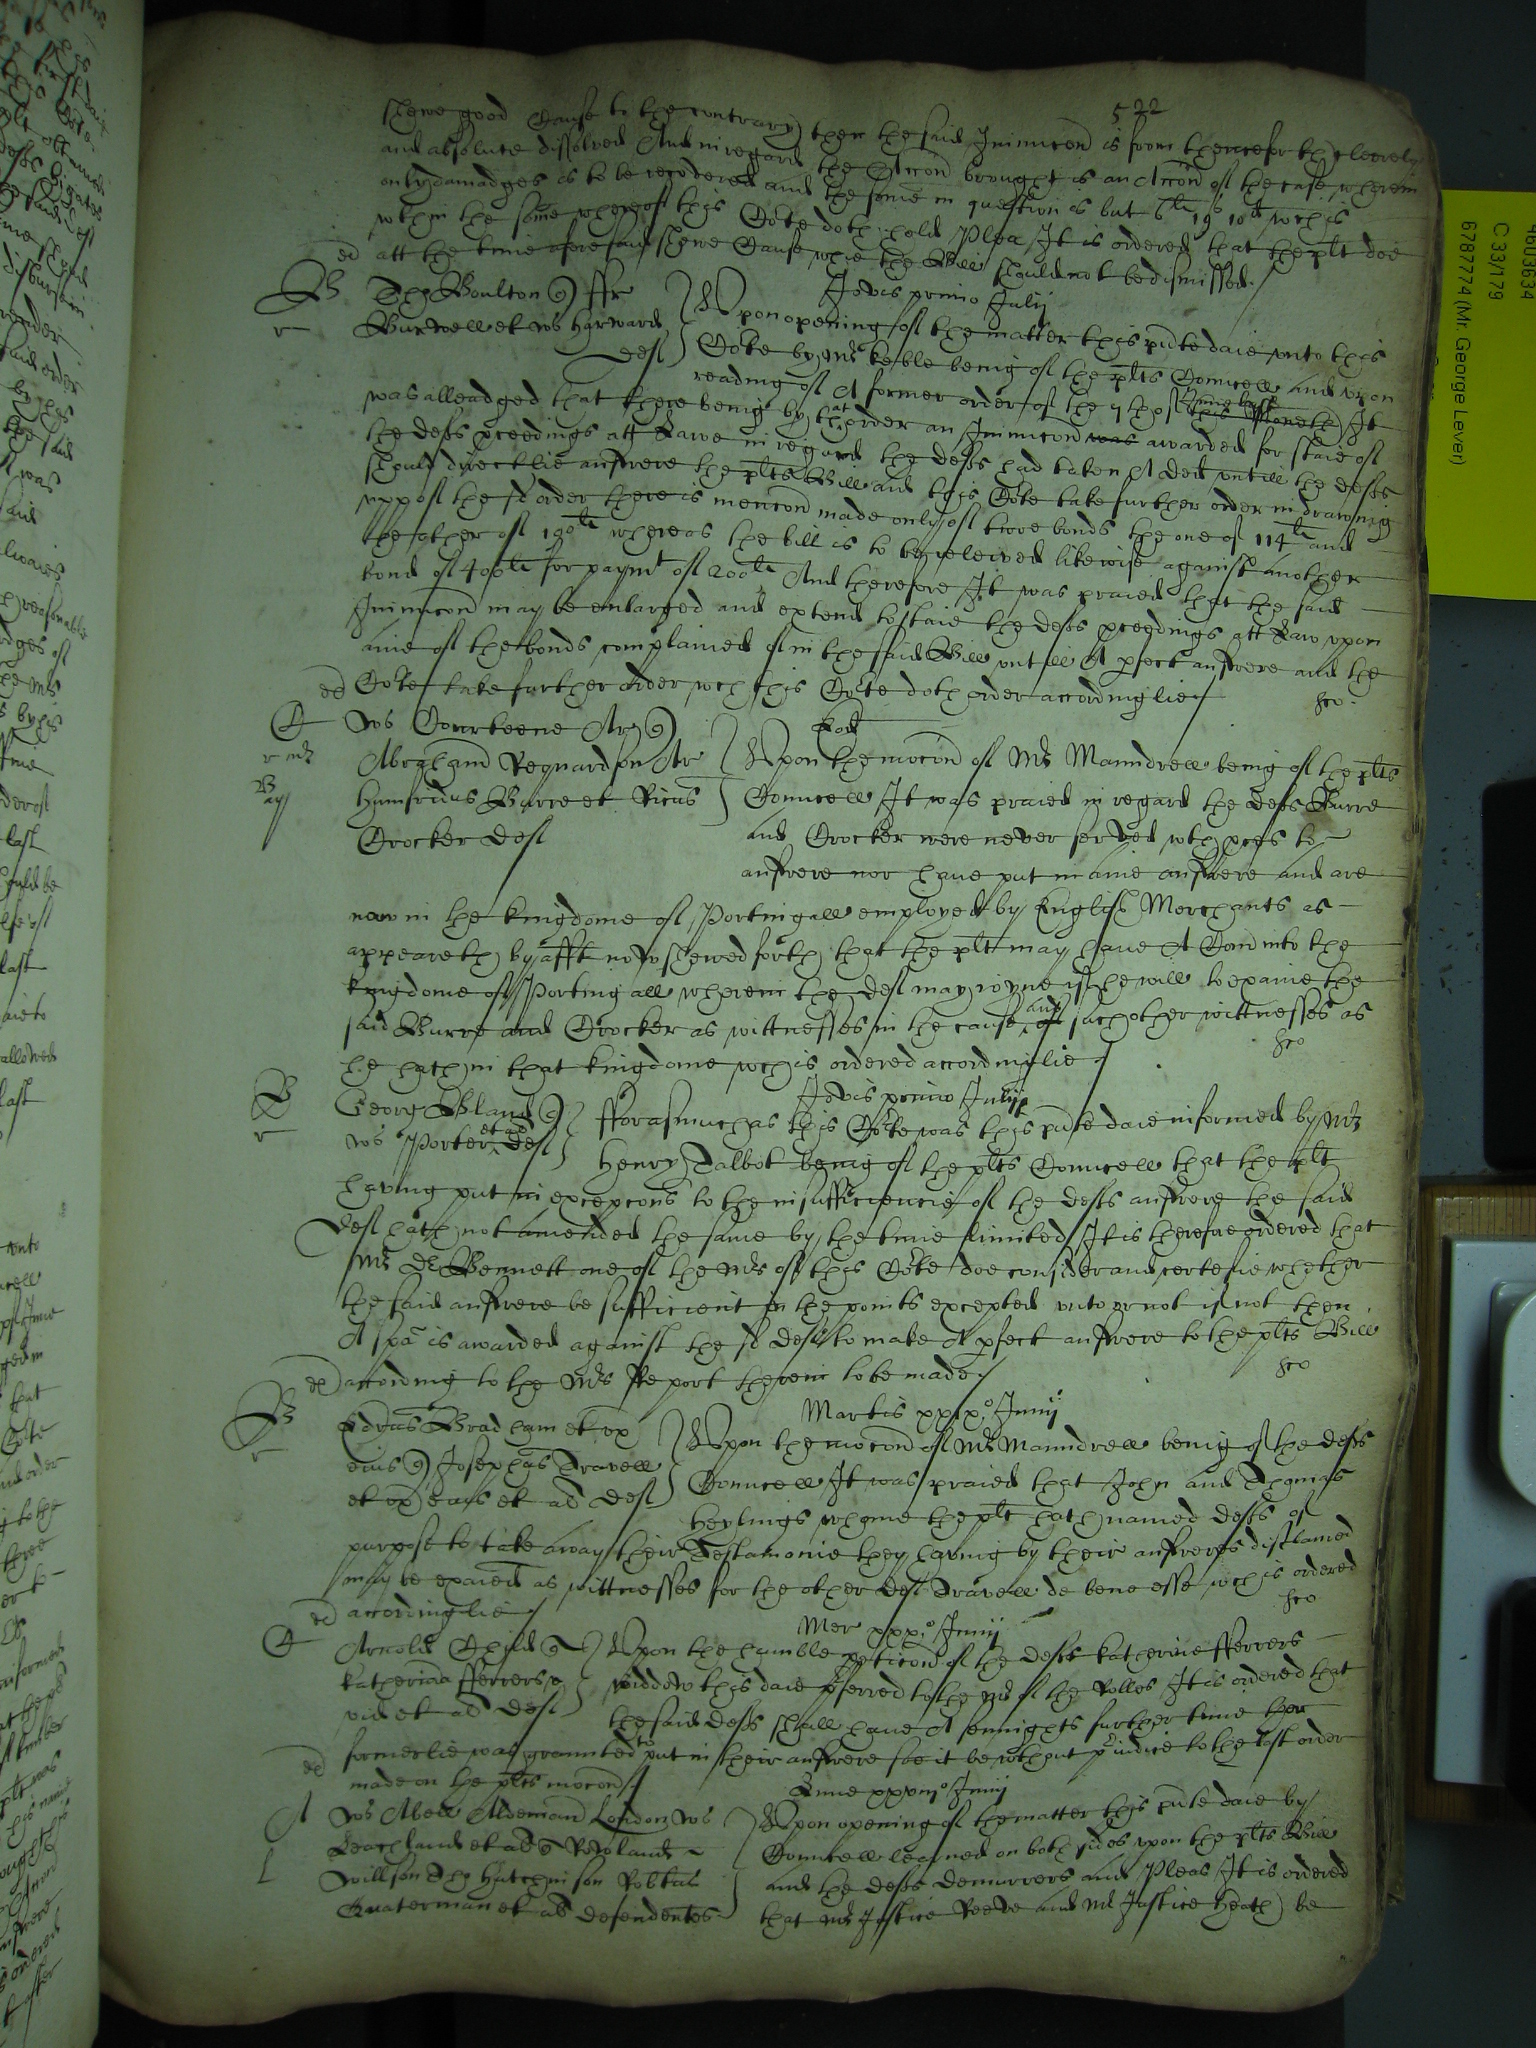 522
shewe good Cause to the contrary then the said Iniuncon is from thenceforth cleerely
and absolute dissolved And in regard the Accon brought is an Accon of the case wherein
only damadges is to be recovered and the some in question is but 6li 19s 10d wch is
wthin the some whereof this Cote doth hold Plea It is ordered that the plt doe
att the time aforesaid shewe Cause whie the Bill should not be dismissed
Jovis primo Julij
Tho Boulton
Burwell et Ws Harward
def
Upon opening of the matter this pnte daie unto this
Cote by Mr Keble being of the plts Councell and upon
reading of A former order of the 7th of June last It
was alleadged that there being by that order an Iniuncon was awarded for staie of
the defts pceedings att Lawe in regard the defts had taken A ded untill the defts
should directlie answere the plts Bill and this Cote take further order in drawing
upp of the sd order there is mencon made only of twoe bonds the one of 114li and
the other of 190li whereas the bill is to be releived likewise against another
bond of 400li for paymt of 200li And therefore It was praied that the said
Iniuncon may be enlarged and extend to staie the defts pceedings att Law upon
anie of the bonds complained of in the said Bill untill A pfect answere and the
Cote take further order wch this Cote doth order accordinglie
Ws Courteene Ar
Abraham Regnardson Ar
Humfridus Burre et Ricus
Crocker def
Eod
Upon the mocon of Mr Maundrell being of the plts
Councell It was praied in regard the defts Burre
and Crocker were never served wth pces to
answere nor have put in anie answere and are
now in the kingdome of Portingall employed by English Merchants as
appeareth by afft now shewed forth that the plt may have A Com into the
kingdome of Portingall wherein the def may ioyne if he will to examine the
said Burre and Crocker as wittnesses in the cause and such other wittnesses as
he hath in that kingdome wch is ordered accordinglie
Jovis primo Julij
Georg Bland
Ws Porter et al def
Forasmuch as this Cote was this pnte daie informed by Mr
Henry Talbot being of the plts Councell that the plt
having put in excepcons to the insufficiencie of the defts answere the said
def hath not amended the same by the time limited It is therefore ordered that
Mr Dr Bennett one of the Mrs of this Cote doe consider and certefie whether
the said answere be sufficient in the points excepted unto or not if not then
A spa is awarded against the sd deft to make A pfect answere to the plts Bill
according to the Mrs Report therein to be made
Martis xxix Junij
Edrus Bradham et ux
eius Josephus Travell
et ux eius et al def
Upon the mocon of Mr Maundrell being of the defts
Councell It was praied that John and Thomas
Heylings whome the plt hath named defts of
purpose to take away their Testamonie they having by their answeres disclamed
may be exaied as wittnesses for the other def Travell de bene esse wch is ordered
accordinglie
Mer xxx Junij
Arnold Child
Katherina fferrers
vid et al def
Upon the humble peticon of the defts Katherine fferrers
widdow this daie pferred to the Mr of the Rolles It is ordered that
the said defts shall have A sennights further time then
formerlie was graunted to put in their answere soe it be wthout preiudice to the last order
made on the plts mocon
Lune xxviij Junij
Ws Abell Aldeman London Ws
Leachland et al Rowland
Willson Tho Hutchinson Robtus
Quaterman et al defendentes
Upon opening of the matter this pnte daie by
Councell learned on both sides upon the plts Bill
and the defts demurrers and Pleas It is ordered
that Mr Justice Reeve and Mr Justice Heath be
4603634
C 33/179
6787774 (Mr. George Lever)